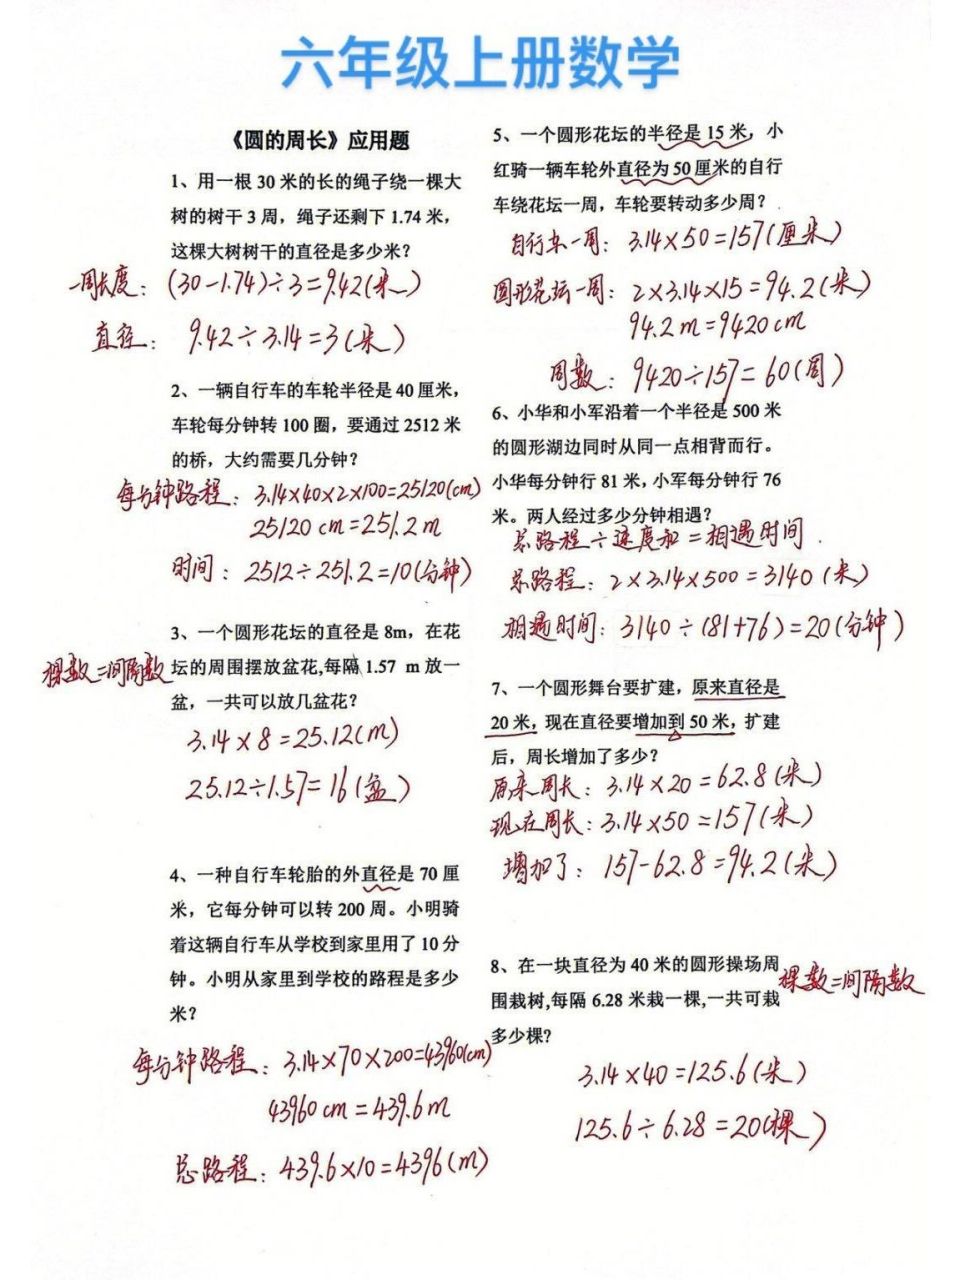 六年级上册数学
《圆的周长》应用题
1、用一根 30 米的长的绳子绕一棵大
树的树干 3 周，绳子还剩下 1.74 米，
这棵大树树干的直径是多少米？
一周长度：(30-1.74)÷3=9.42(米)
直径：9.42÷3.14=3(米)
2、一辆自行车的车轮半径是 40 厘米，
车轮每分钟转 100 圈，要通过 2512 米
的桥，大约需要几分钟？
每分钟路程：3.14×40×2×100=25120(cm)
25120 cm=251.2 m
时间：2512÷251.2=10(分钟)
3、一个圆形花坛的直径是 8m，在花
坛的周围摆放盆花,每隔 1.57 m 放一
棵数=间隔数
盆，一共可以放几盆花？
3.14×8=25.12(m)
25.12÷1.57=16(盆)
4、一种自行车轮胎的外直径是 70 厘
米，它每分钟可以转 200 周。小明骑
着这辆自行车从学校到家里用了 10 分
钟。小明从家里到学校的路程是多少
米？
每分钟路程：3.14×70×200=43960(cm)
43960 cm=439.6 m
总路程：439.6×10=4396(m)
5、一个圆形花坛的半径是 15 米，小
红骑一辆车轮外直径为 50 厘米的自行
车绕花坛一周，车轮要转动多少周？
自行车一周：3.14×50=157(厘米)
圆形花坛一周：2×3.14×15=94.2(米)
94.2 m=9420 cm
周数：9420÷157=60(周)
6、小华和小军沿着一个半径是 500 米
的圆形湖边同时从同一点相背而行。
小华每分钟行 81 米，小军每分钟行 76
米。两人经过多少分钟相遇？
总路程÷速度和=相遇时间.
总路程：2×3.14×500=3140(米)
相遇时间：3140÷(81+76)=20(分钟)
7、一个圆形舞台要扩建，原来直径是
20 米，现在直径要增加到 50 米，扩建
后，周长增加了多少？
原来周长：3.14×20=62.8(米)
现在周长：3.14×50=157(米)
增加了：157-62.8=94.2(米)
8、在一块直径为 40 米的圆形操场周
棵数=间隔数
围栽树,每隔 6.28 米栽一棵,一共可栽
多少棵？
3.14×40=125.6(米)
125.6÷6.28=20(棵)